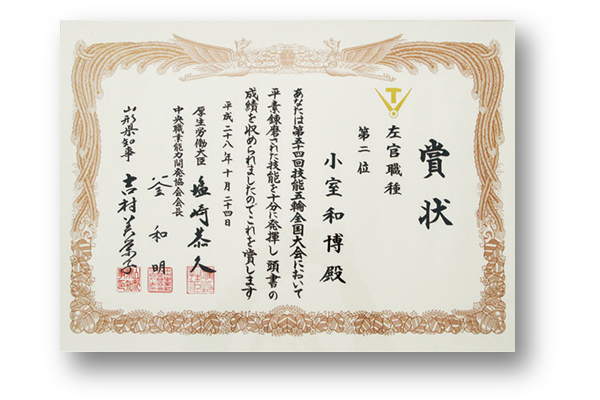 賞状
左官職種
第二位
小室和博殿
あなたは第五十四回技能五輪全国大会において
平素錬磨された技能を十分に発揮し頭書の
成績を収められましたのでこれを賞します
平成二十八年十月二十四日
厚生労働大臣 塩崎恭久
中央職業能力開発協会会長 釜和明
山形県知事 吉村美栄子